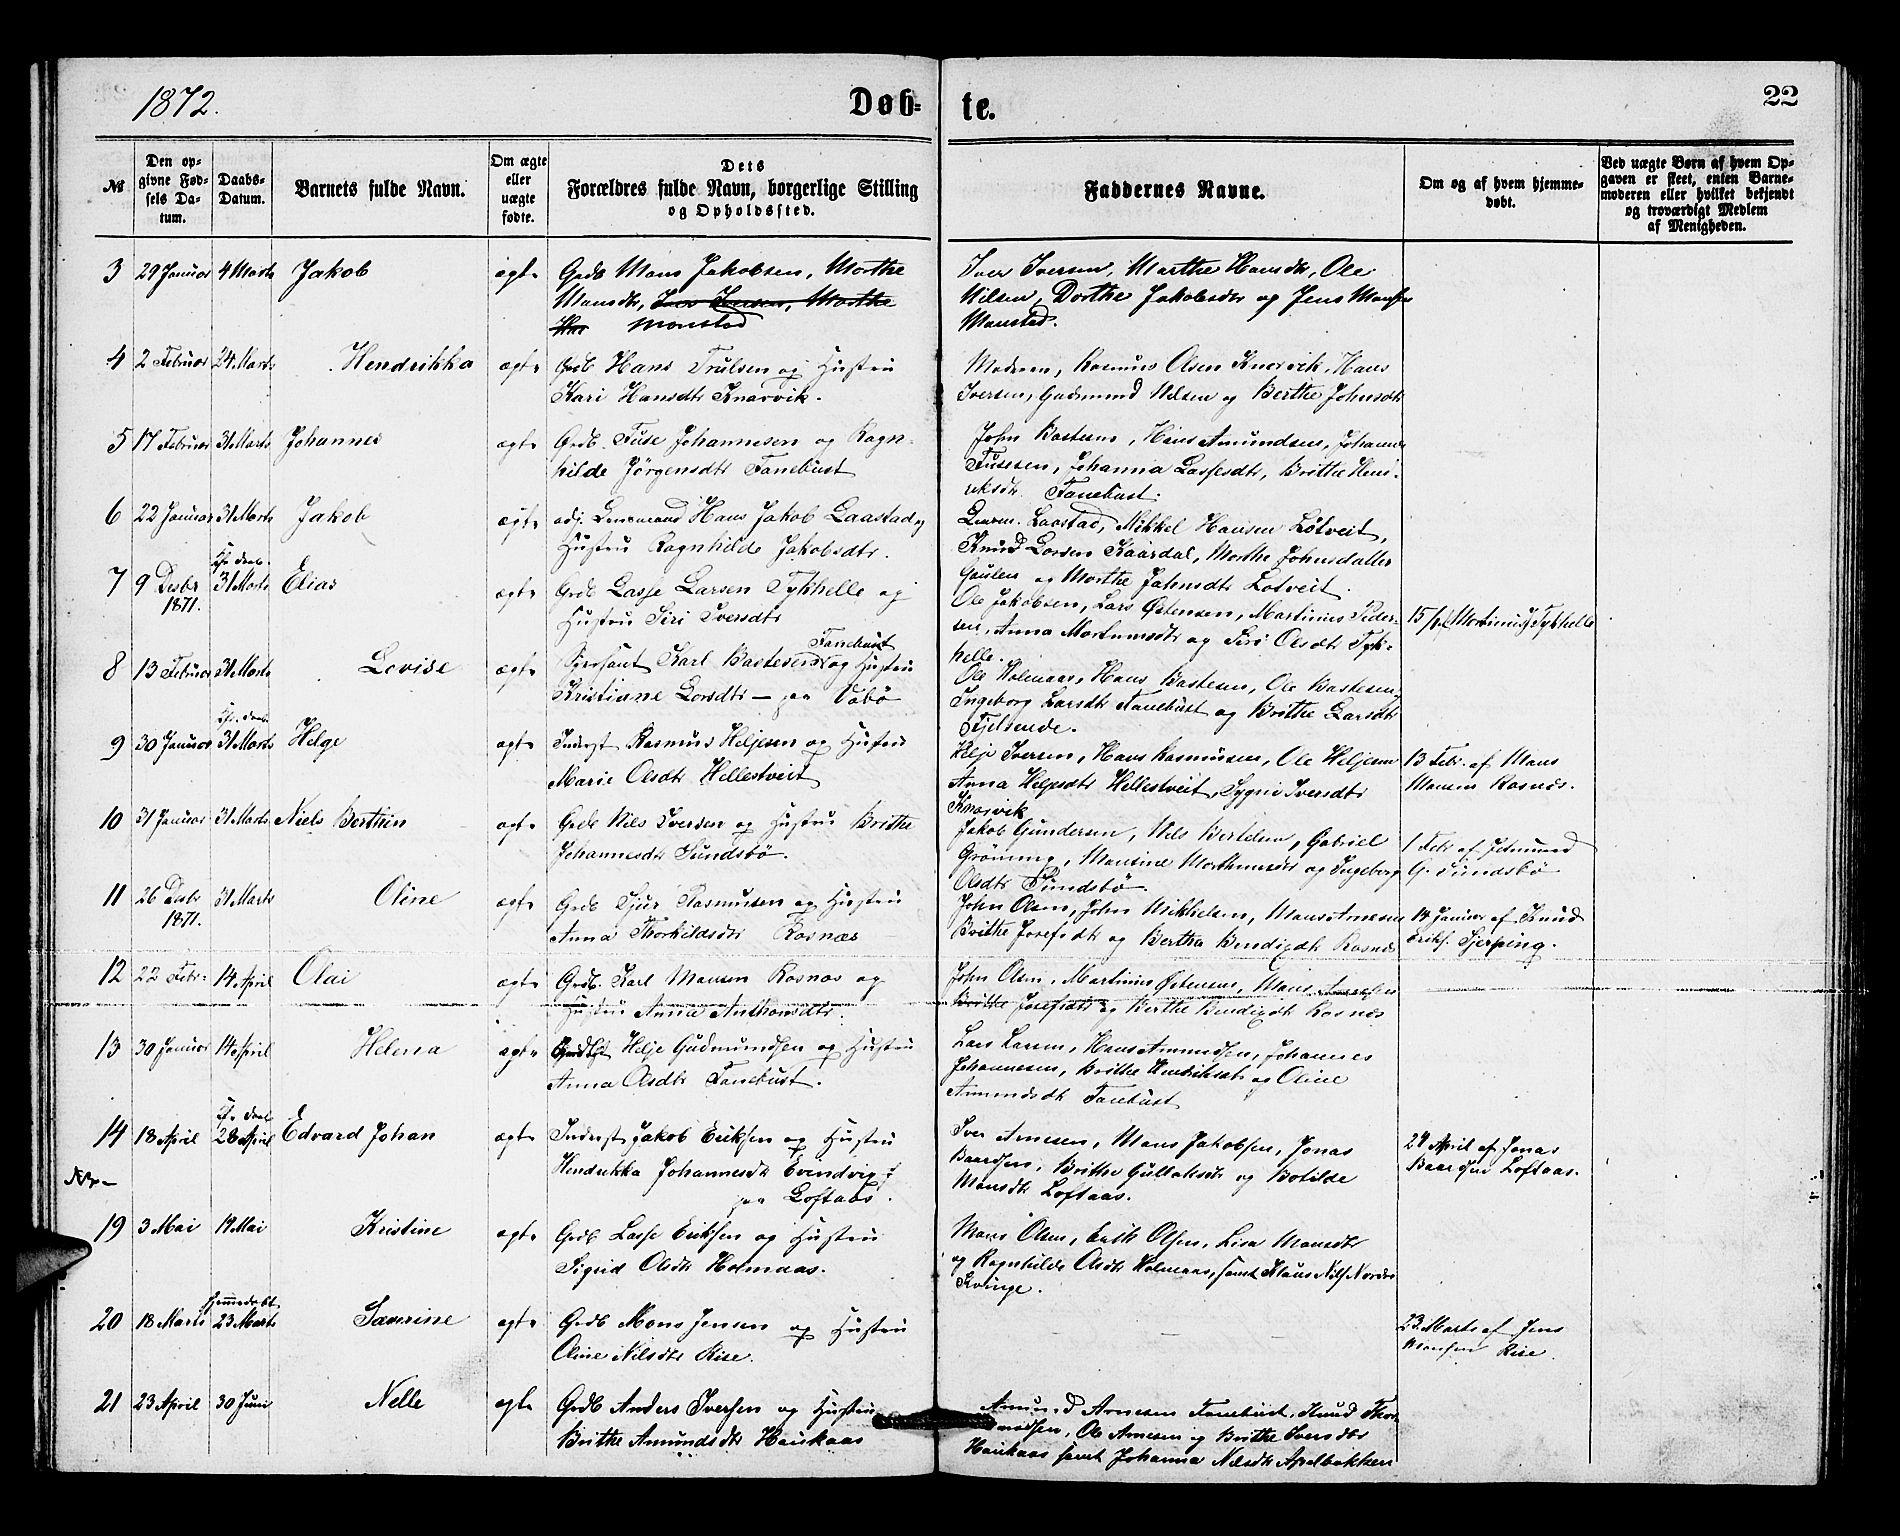 1872.
Døb-
te.
22
№
Den op-
givne Fød-
sels Da-
tum.
Daabs-
Datum.
Barnets fulde Navn.
Om ægte
eller
uægte
fødte.
Dets
Forældres fulde Navn, borgerlige Stilling
og Opholdssted.
Faddernes Navne.
Om og af hvem hjemme-
døbt.
Ved uægte Børn af hvem Op-
gaven er skeet, enten Barne-
moderen eller hvilket bekjendt
og troværdigt Medlem
af Menigheden.
3 29 Januar 4 Marts Jakob ægte Grdb Mons Jakobsen, Marthe
Monsdtr, Iver Iversen, Marthe
Han Monstad
Iver Iversen, Marthe Hansdtr, Ole
Nilsen, Dorthe Jakobsdtr og Jens Monsen
Monstad.
4 2 Februar 24 Marts Hendrikka ægte Grdb Hans Trulsen og Hustru
Kari Hansdtr Knarvik.
Moderen, Rasmus Olsen Knarvik, Hans
Iversen, Gudmund Nilsen og Berthe Johnsdtr
5 17 Februar 31 Marts Johannes ægte Grdb. Tuse Johannesen og Ragn-
hilde Jörgensdtr Tanebust
John Bastesen, Hans Amundsen, Johannes
Tusesen, Johanna Lassesdtr, Brithe Hen-
riksdtr Tanebust.
6 22 Januar 31 Marts Jakob ægte adj. Lensmand Hans Jakob Laastad og
Hustru Ragnhilde Jakobsdtr.
Lensm. Laastad, Mikkel Hansen Løtveit,
Knud Larsen Kaardal, Marthe Johnsdatter
Gaulen og Marthe Johnsdtr Løtveit.
7 9 Decbr
1871. 31 Marts Elias ægte Grdb Lasse Larsen Tykhelle og
Hustru Siri Iversdtr
Ole Jakobsen, Lars Østensen, Martinus Peder-
sen, Anna Martinusdtr og Siri Olsdtr Tyk-
helle.
Martinus Tykhelle
8 13 Februar 31 Marts Lovise ægte Sjersant Karl Bastesen Tanebust og Hustru
Kristiane Larsdtr — paa Vabø
Ole Holmaas, Hans Bastesen, Ole Bastesen,
Ingeborg Larsdtr Tanebust og Brithe Larsdtr
Fjelsende.
9 30 Januar 31 Marts Helge ægte Inderst Rasmus Heljesen og Hustru
Marie Olsdtr Hellestveit
Helje Iversen, Hans Rasmussen, Ole Heljesen
Anna Heljesdtr Hellestveit, Sygni Iversdtr
Knarvik
13 Febr. af Mons
Monsen Rosnæs.
10 31 Januar 31 Marts Niels Berthin ægte Grdb Nils Iversen og Hustru Brithe
Johannesdtr Sundsbö.
Jakob Gundersen, Nils Bertelsen, Gabriel
Grönning, Monsine Mortinusdtr og Ingeborg
Olsdtr Sundsbö.
1 Febr af
G. Sundsbö
11 26 Decbr
1871. 31 Marts Oline ægte Grdb Sjur Rasmusen og Hustru
Anna Thorkildsdtr Rosnæs
John Olsen, John Mikkelsen, Mons Arnesen
Brithe Josefsdtr og Bertha Bendixdtr Rosnæs
14 Januar af Knud
Eriks. Sjerping.
12 22 Febr. 14 April Olai ægte Grdb. Karl Monsen Rosnæs og
Hustru Anna Anthonsdtr.
John Olsen, Martinus Østensen, Mons Arnesen
Brithe Josefsdtr og Berthe Bendixdtr Rosnæs
13 30 Januar 14 April Helena ægte Helje Gudmundsen og Hustru
Anna Olsdtr Tanebust.
Lars Larsen, Hans Amundsen, Johannes
Johannesen, Brithe Henriksdtr og Oline
Amundsdtr Tanebust
14 18 April 28 April Edvard Johan ægte Inderst Jakob Eriksen og Hustru
Hendrikka Johannesdtr Evindvig
paa Loftaas.
Iver Arnesen, Mons Jakobsen, Jonas
Baardsen, Brithe Gullaksdtr og Botilde
Monsdtr Loftaas.
24 April af Jonas
Baardsen Loftaas.
19 3 Mai 19 Mai Kristine ægte Grdb Lasse Eriksen og Hustru
Sigrid Olsdtr Holmaas.
Mons Olsen, Erik Olsen, Lisa Monsdtr
og Ragnhilde Olsdtr Holmaas, samt Klaus Nils Nordre
Kvinge.
20 18 Marts Hjemmedøbt
23 Marts Severine ægte Grdb Mons Jensen og Hustru
Oline Nilsdtr Rise.
23 Marts af Jens
Monsen Rise.
21 23 April 30 Juni Nelle ægte Grdb Anders Iversen og Hustru
Brithe Amundsdtr Haukaas
Amund Arnesen Tanebust, Knud Thor-
Ole Arnesen og Brithe Iversdtr
Haukaas samt Johanna Nilsdtr Apelbakken